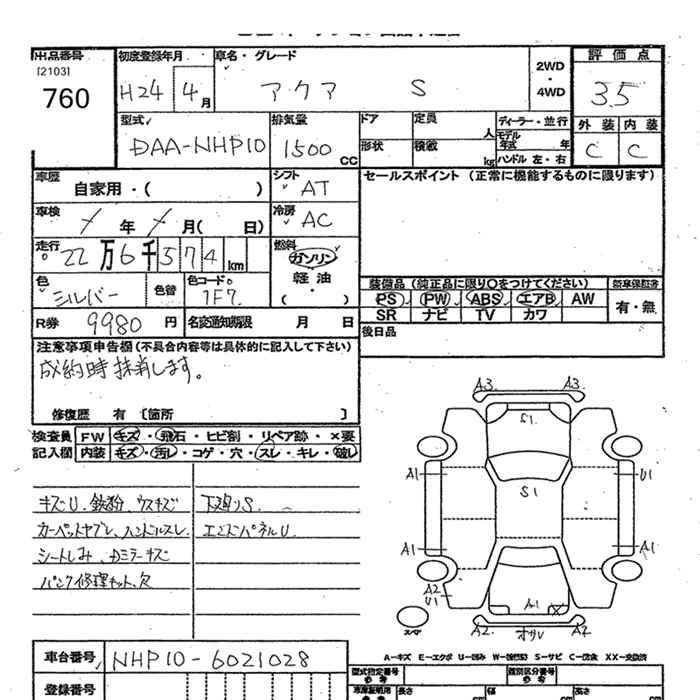 出品番号 初度登録年月 車名・グレード 評価点
[2103]
760
H24 4月 アクア S 2WD・4WD 3.5
型式 排気量 ドア 定員 人 ディーラー・並行 外装 内装
DAA-NHP10 1500cc 形状 積載 kg モデル年式 年 ハンドル 左・右 C C
車歴 自家用・( ) シフト AT セールスポイント (正常に機能するものに限ります)
車検 年 月( 日) 冷房 AC
走行 22万6千574km 燃料 ガソリン 軽油 ( )
色 シルバー 色替 色コード 1F7 装備品 (純正品に限り○をつけてください) 新車保証書
PS PW ABS エアB AW 有・無
SR ナビ TV カワ
R券 9980円 名変通知期限 月 日 後日品
注意事項申告欄 (不具合内容等は具体的に記入して下さい)
成約時抹消します。
修復歴 有 [箇所 ]
検査員 FW キズ・飛石・ヒビ割・リペア跡・×要
記入欄 内装 キズ・汚レ・コゲ・穴・スレ・キレ・破レ
キズU.鉄粉.ウスキズ 下廻りS.
カーペットヤブレ、ハンドルスレ. エンドパネルU.
シートしみ、Dミラーキズ
パンク修理キット、欠
A3 A3
S1
A1 S1 U1
A1 A1
A2
U1
A2 A2
スペア
A-キズ E-エクボ U-凹み W-波(板金) S-サビ C-腐食 XX-交換済
車台番号 NHP10-6021028
型式指定番号 参考 類別区分番号 参考
登録番号 長さ cm 幅 cm 高さ cm